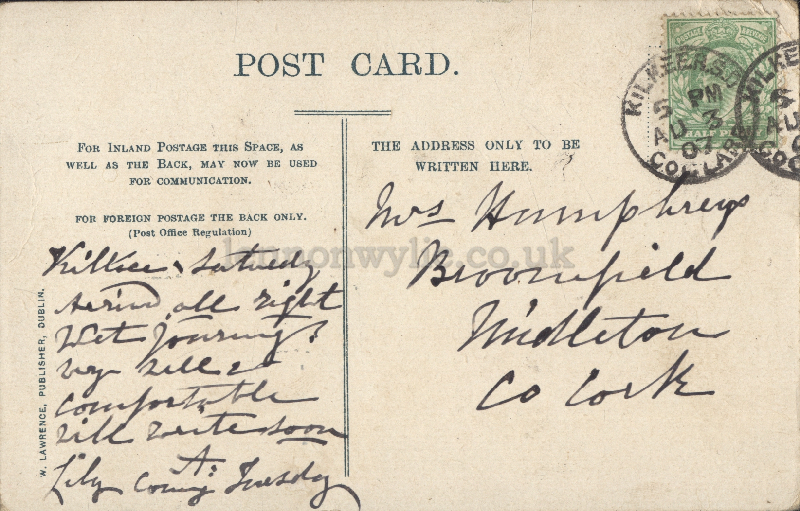 POST CARD.
FOR INLAND POSTAGE THIS SPACE, AS
WELL AS THE BACK, MAY NOW BE USED
FOR COMMUNICATION.
FOR FOREIGN POSTAGE THE BACK ONLY.
(Post Office Regulation)
THE ADDRESS ONLY TO BE
WRITTEN HERE.
W. LAWRENCE, PUBLISHER, DUBLIN.
Kilkee Saturdy
Arrived all right
Wet Journey
vy well &
comfortable
will write soon
A.
Lily coming Tuesday
Mrs Humphreys
Broomfield
Midleton
Co Cork
POSTAGE
HALF PENNY
KILKEE
5 PM
AU 3
07
CO. CLARE
KILKEE
AU
lennonwylie.co.uk